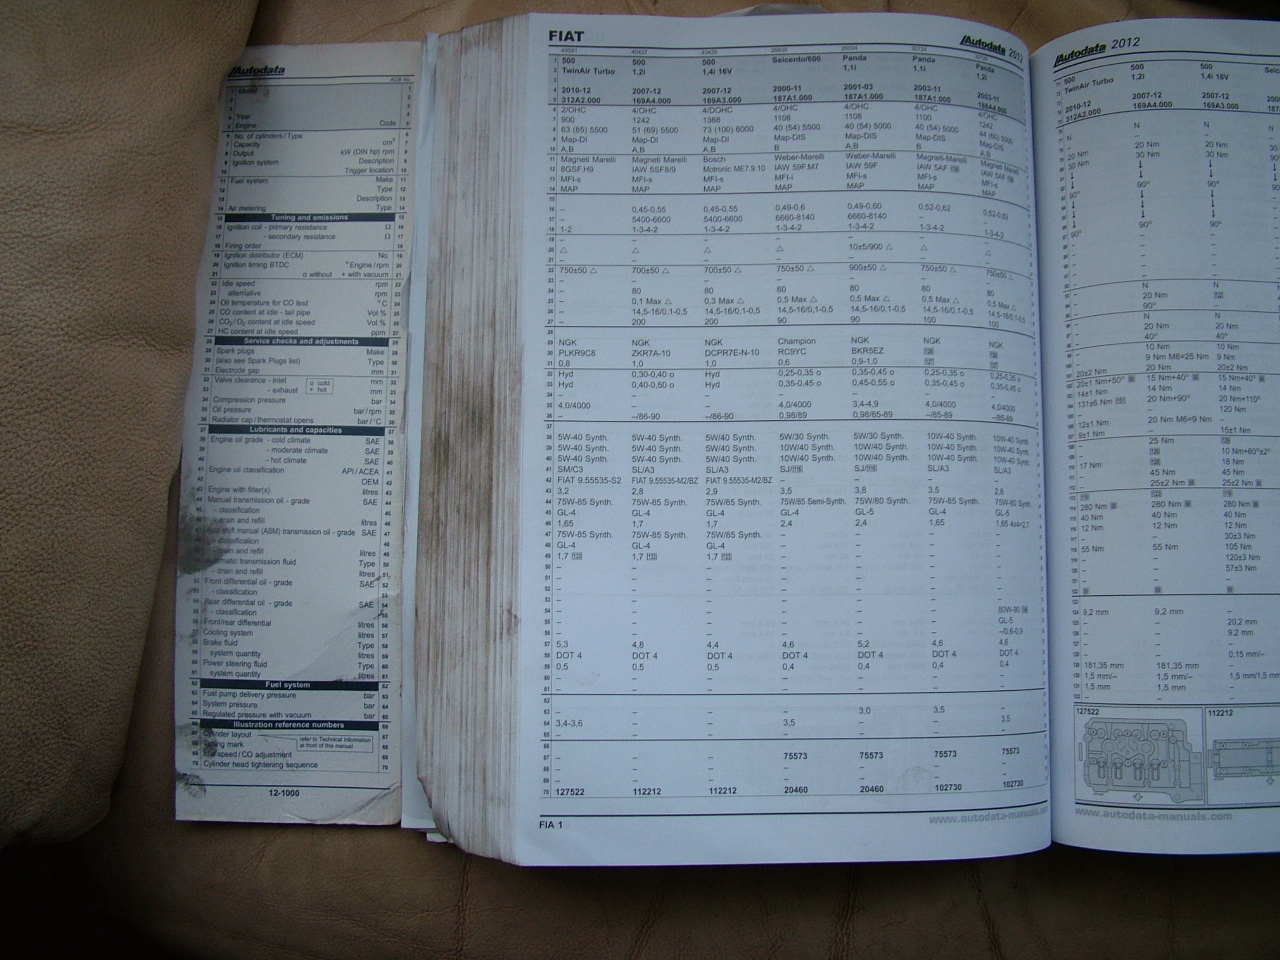 Autodata
Model
Year
Engine Code
No. of cylinders/Type
Capacity cm³
Output kW (DIN hp) rpm
Ignition system Description
Trigger location
Fuel system Make
Type
Description
Air metering Type
Tuning and emissions
Ignition coil - primary resistance Ω
- secondary resistance Ω
Firing order
Ignition distributor (ECM) No.
Ignition timing BTDC °Engine/rpm
o without + with vacuum
Idle speed rpm
alternative rpm
Oil temperature for CO test °C
CO content at idle - tail pipe Vol.%
CO2/O2 content at idle speed Vol.%
HC content at idle speed ppm
Service checks and adjustments
Spark plugs Make
(also see Spark Plugs list) Type
Electrode gap mm
Valve clearance - inlet o cold mm
- exhaust + hot mm
Compression pressure bar
Oil pressure bar/rpm
Radiator cap/thermostat opens bar/°C
Lubricants and capacities
Engine oil grade - cold climate SAE
- moderate climate SAE
- hot climate SAE
Engine oil classification API/ACEA
OEM
Engine with filter(s) litres
Manual transmission oil - grade SAE
- classification
- drain and refill litres
shift manual (ASM) transmission oil - grade SAE
classification
drain and refill litres
transmission fluid Type
- drain and refill litres
Front differential oil - grade SAE
- classification
Rear differential oil - grade SAE
- classification
Front/rear differential litres
Cooling system litres
Brake fluid Type
system quantity litres
Power steering fluid Type
system quantity litres
Fuel system
Fuel pump delivery pressure bar
System pressure bar
Regulated pressure with vacuum bar
Illustration reference numbers
Cylinder layout refer to Technical Information
at front of this manual
Timing mark
Idle speed/CO adjustment
Cylinder head tightening sequence
12-1000
FIAT Autodata 2012
500 500 500 Seicento/600 Panda Panda Panda
TwinAir Turbo 1,2i 1,4i 16V 1,1i 1,1i 1,2i
2010-12 2007-12 2007-12 2000-11 2001-03 2003-11 2003-11
312A2.000 169A4.000 169A3.000 187A1.000 187A1.000 187A1.000 188A4.000
2/OHC 4/OHC 4/DOHC 4/OHC 4/OHC 4/OHC 4/OHC
900 1242 1368 1108 1108 1100 1242
63 (85) 5500 51 (69) 5500 73 (100) 6000 40 (54) 5500 40 (54) 5500 40 (54) 5500 44 (60) 5000
Map-DI Map-DI Map-DI Map-DIS Map-DIS Map-DIS Map-DIS
A,B A,B A,B B A,B B A,B
Magneti Marelli Magneti Marelli Bosch Weber-Marelli Weber-Marelli Magneti-Marelli Magneti Marelli
8GSF.H9 IAW 5SF8/9 Motronic ME7.9.10 IAW 59F.M7 IAW 59F IAW 5AF IAW 5AF
MFI-s MFI-s MFI-s MFI-i MFI-s MFI-s MFI-s
MAP MAP MAP MAP MAP MAP MAP
– 0,45-0,55 0,45-0,55 0,49-0,6 0,49-0,60 0,52-0,62 0,52-0,62
– 5400-6600 5400-6600 6660-8140 6660-8140 –
1-2 1-3-4-2 1-3-4-2 1-3-4-2 1-3-4-2 1-3-4-2 1-3-4-2
– – – – – –
△ △ △ △ 10±5/900 △ △ △
750±50 △ 700±50 △ 700±50 △ 750±50 △ 900±50 △ 750±50 △ 750±50 △
– 80 80 60 80 80 80
– 0,1 Max △ 0,3 Max △ 0,5 Max △ 0,5 Max △ 0,5 Max △ 0,5 Max △
– 14,5-16/0,1-0,5 14,5-16/0,1-0,5 14,5-16/0,1-0,5 14,5-16/0,1-0,5 14,5-16/0,1-0,5 14,5-16/0,1-0,5
– 200 200 90 90 100 100
NGK NGK NGK Champion NGK NGK NGK
PLKR9C8 ZKR7A-10 DCPR7E-N-10 RC9YC BKR5EZ
0,8 1,0 1,0 0,6 0,9-1,0
Hyd 0,30-0,40 o Hyd 0,25-0,35 o 0,35-0,45 o 0,25-0,35 o 0,25-0,35 o
Hyd 0,40-0,50 o Hyd 0,35-0,45 o 0,45-0,55 o 0,35-0,45 o 0,35-0,45 o
4,0/4000 – – 4,0/4000 3,4-4,9 4,0/4000 4,0/4000
– –/86-90 –/86-90 0,98/89 0,98/85-89 –/85-89 –/86-89
5W-40 Synth. 5W-40 Synth. 5W-40 Synth. 5W/30 Synth. 5W/30 Synth. 10W-40 Synth. 10W-40 Synth.
5W-40 Synth. 5W-40 Synth. 5W-40 Synth. 10W/40 Synth. 10W/40 Synth. 10W-40 Synth. 10W-40 Synth.
5W-40 Synth. 5W-40 Synth. 5W-40 Synth. 10W/40 Synth. 10W/40 Synth. 10W-40 Synth. 10W-40 Synth.
SM/C3 SL/A3 SL/A3 SJ/ SJ/ SL/A3 SL/A3
FIAT 9.55535-S2 FIAT 9.55535-M2/BZ FIAT 9.55535-M2/BZ – – – –
3,2 2,8 2,9 3,5 3,8 3,5 2,8
75W-85 Synth. 75W-85 Synth. 75W-85 Synth. 75W/85 Semi-Synth. 75W/80 Synth. 75W-85 Synth. 75W-80 Synth.
GL-4 GL-4 GL-4 GL-4 GL-5 GL-4 GL-5
1,65 1,7 1,7 2,4 2,4 1,65 1,65 4x4=2,7
75W-85 Synth. 75W-85 Synth. 75W-85 Synth. – – – –
GL-4 GL-4 GL-4 – – – –
1,7 1,7 1,7 – – – –
80W-90
GL-5
–/0,6-0,9
5,3 4,8 4,4 4,6 5,2 4,6 4,6
DOT 4 DOT 4 DOT 4 DOT 4 DOT 4 DOT 4 DOT 4
0,5 0,5 0,5 0,4 0,4 0,4 0,4
3,0 3,5
3,4-3,6 – – 3,5 – – 3,5
– – – 75573 75573 75573 75573
127522 112212 112212 20460 20460 102730 102730
FIA 1
www.autodata-manuals.com
Autodata 2012
500 500 500
TwinAir Turbo 1,2i 1,4i 16V
2010-12 2007-12 2007-12
312A2.000 169A4.000 169A3.000
N N N
20 Nm 20 Nm 20 Nm
30 Nm 30 Nm 30 Nm
90° 90° 90°
↓ ↓ ↓
90° 90° 90°
N N
20 Nm
90°
N N
20 Nm 20 Nm
40° 40°
10 Nm 10 Nm
9 Nm M8=25 Nm 9 Nm
20±2 Nm 20±2 Nm 20±2 Nm
20±1 Nm+50° 15 Nm+40° 15 Nm+40°
14±1 Nm 14 Nm 14 Nm
131±6 Nm 20 Nm+90° 20 Nm+110°
120 Nm
12±1 Nm 20 Nm M6=9 Nm
9±1 Nm 15±1 Nm
25 Nm
10 Nm+60°±2°
17 Nm 18 Nm
45 Nm 45 Nm
25±2 Nm 25±2 Nm
280 Nm 280 Nm 280 Nm
40 Nm 40 Nm 40 Nm
12 Nm 12 Nm 12 Nm
30±3 Nm
55 Nm 55 Nm 105 Nm
120±3 Nm
57±3 Nm
9,2 mm 9,2 mm
20,2 mm
9,2 mm
0,15 mm/–
181,35 mm 181,35 mm
1,5 mm/– 1,5 mm/–
1,5 mm 1,5 mm
127522 112212
www.autodata-manuals.com